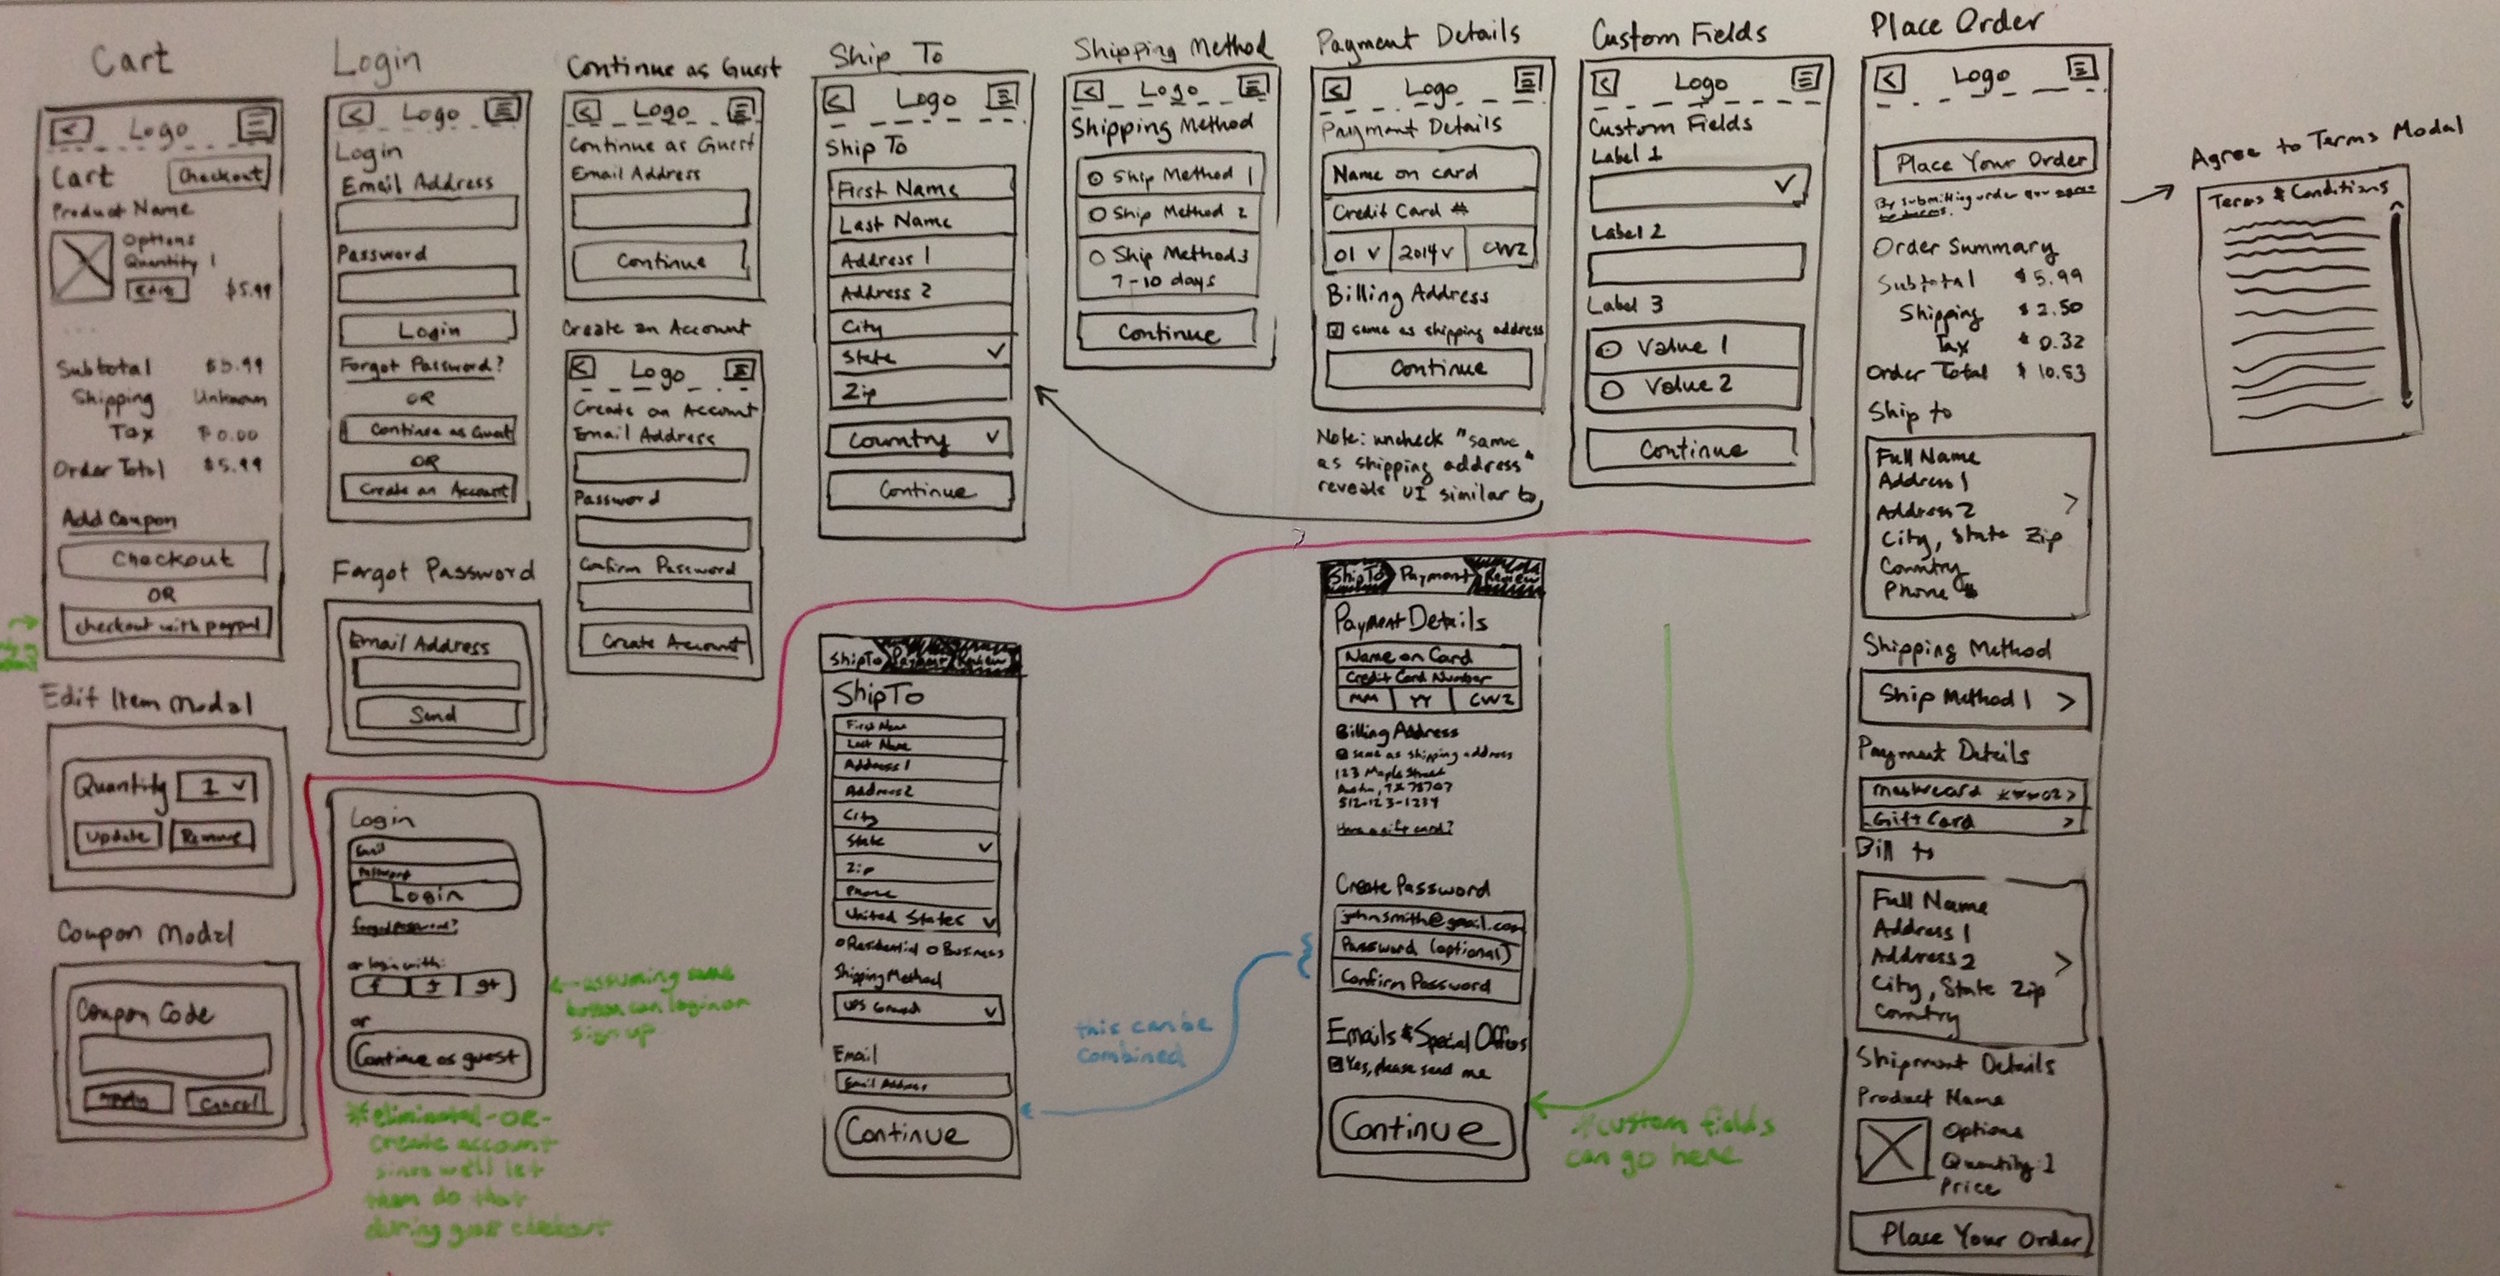 Cart
< Logo
Cart Checkout
Product Name
Options
Quantity 1
Edit $5.99
Subtotal $5.99
Shipping Unknown
Tax $0.00
Order Total $5.99
Add Coupon
Checkout
OR
checkout with paypal
Edit Item Modal
Quantity 1
Update Remove
Coupon Modal
Coupon Code
Apply Cancel
Login
< Logo
Login
Email Address
Password
Login
Forgot Password?
OR
Continue as Guest
OR
Create an Account
Forgot Password
Email Address
Send
Login
Email
Password
Login
forgot password?
or login with:
f t g+
or
Continue as guest
*eliminated -OR-
Create account
since we'll let
them do that
during guest checkout
<--assuming same
button can login or
sign up
Continue as Guest
< Logo
Continue as Guest
Email Address
Continue
Create an Account
< Logo
Create an Account
Email Address
Password
Confirm Password
Create Account
Ship To
< Logo
Ship To
First Name
Last Name
Address 1
Address 2
City
State
Zip
Country
Continue
Ship To Payment Review
Ship To
First Name
Last Name
Address 1
Address 2
City
State
Zip
Phone
United States
Residential Business
Shipping Method
UPS Ground
Email
Email Address
Continue
this can be
combined
Shipping Method
< Logo
Shipping Method
Ship Method 1
Ship Method 2
Ship Method 3
7-10 days
Continue
Payment Details
< Logo
Payment Details
Name on card
Credit Card #
01 2014 CVV2
Billing Address
same as shipping address
Continue
Note: uncheck "same
as shipping address"
reveals UI similar to,
Ship To Payment Review
Payment Details
Name on Card
Credit Card Number
MM YY CVV2
Billing Address
same as shipping address
123 Maple Street
Austin, TX 78707
512-123-1234
Have a gift card?
Create Password
johnsmith@gmail.com
Password (optional)
Confirm Password
Emails & Special Offers
Yes, please send me
Continue
*custom fields
can go here
Custom Fields
< Logo
Custom Fields
Label 1
Label 2
Label 3
Value 1
Value 2
Continue
Place Order
< Logo
Place Your Order
By submitting order you agree
to terms.
Order Summary
Subtotal $5.99
Shipping $2.50
Tax $0.32
Order Total $10.53
Ship to
Full Name
Address 1
Address 2 >
City, State Zip
Country
Phone #
Shipping Method
Ship Method 1 >
Payment Details
Mastercard ***02 >
Gift Card >
Bill to
Full Name
Address 1
Address 2 >
City, State Zip
Country
Shipment Details
Product Name
Options
Quantity: 1
Price
Place Your Order
Agree to Terms Modal
Terms & Conditions